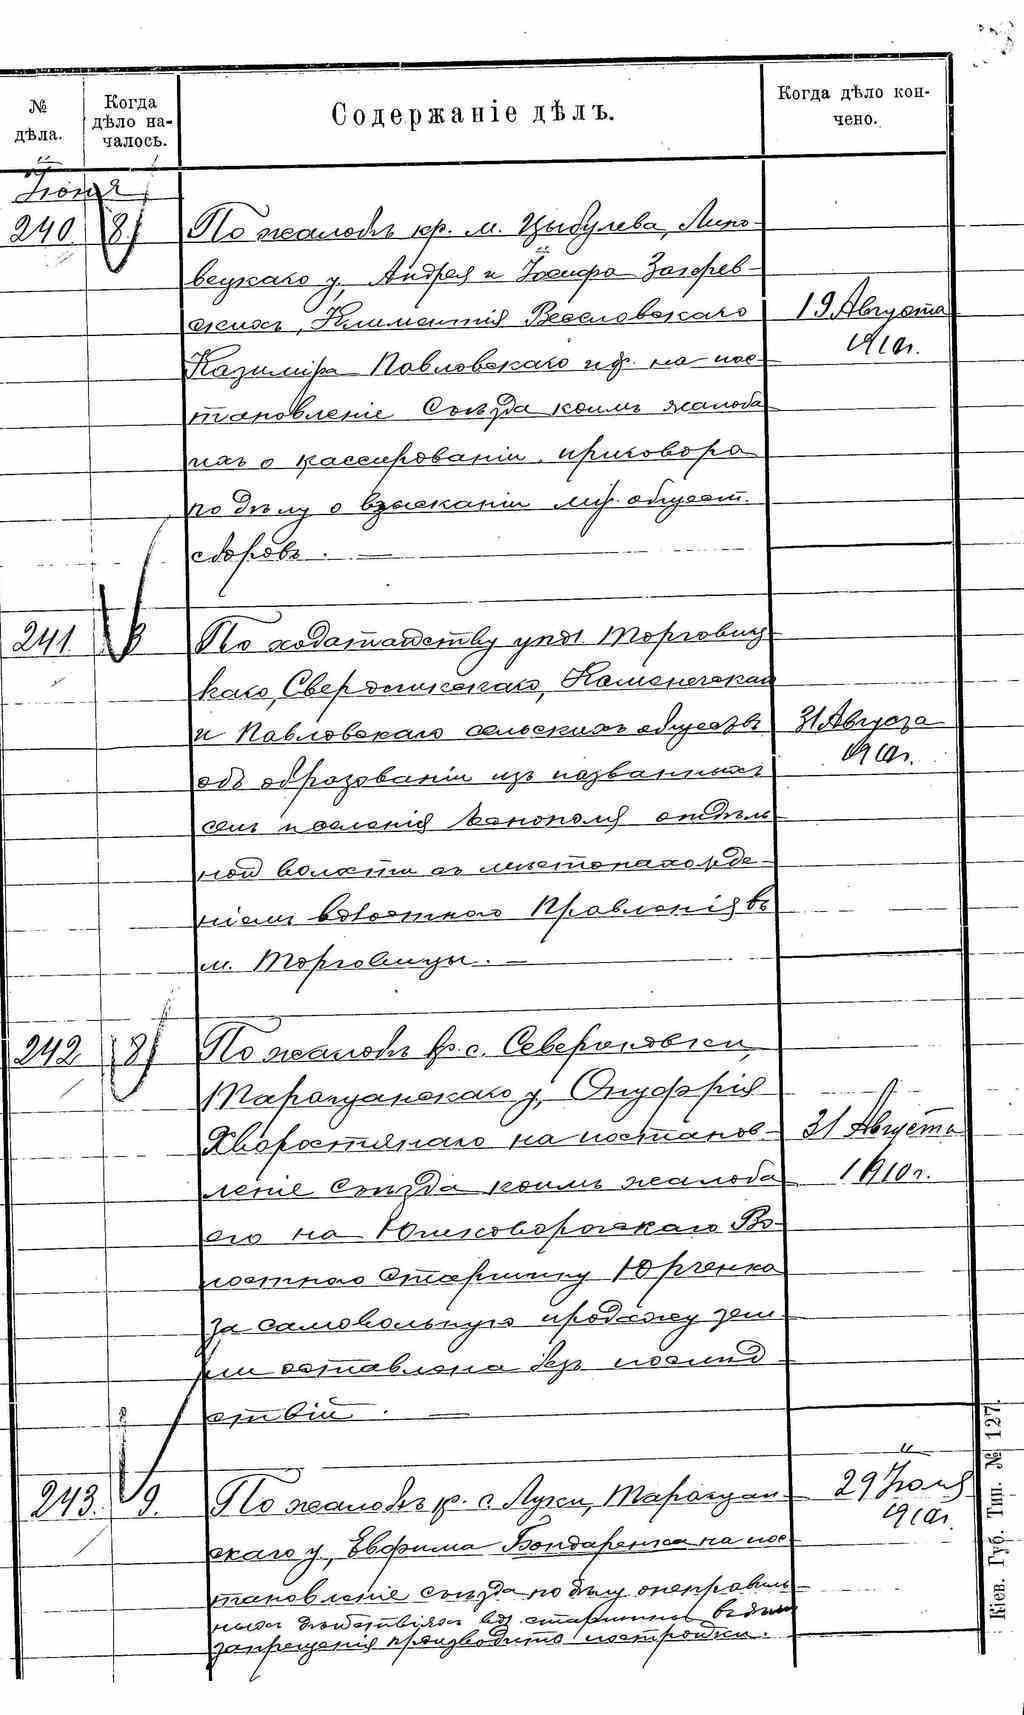 № дѣла.
Когда дѣло началось.
Содержаніе дѣлъ.
Когда дѣло кончено.
Іюня
240. 8 По жалобѣ кр. м. Цыбулева, Липо-
вецкаго у, Андрея и Іосифа Закрев-
скихъ, Климентія Веселовскаго
19 Августа
Казиміра Павловскаго и др. на пос-
1910г.
тановленіе Съѣзда коимъ жалоба
ихъ о кассированіи приговора
по дѣлу о взысканіи мір. общест.
сборовъ. —
241. 8 По ходатайству упол Торговиц-
каго, Свердликскаго, Каменечскаго
и Павловскаго сельскихъ обществъ
31 Августа
объ образованіи изъ названныхъ
1910г.
селъ и селенія отдѣль
ной волости съ мѣстонахожде-
ніемъ волостного Правленія въ
м. Торговицы. —
242 8 По жалобѣ кр. с. Севериновки,
Таращанскаго у, Онуфрія
Хворостянаго на постанов-
31 Августа
леніе Съѣзда коимъ жалоба
1910г.
его на Юшковорогскаго Во-
лостного Старшину Юрченка
за самовольную продажу зем-
ли оставлена безъ послѣд
ствій. —
243. 9. По жалобѣ кр. с. Луки, Таращан-
29 Іюля
1910г.
скаго у, Евфима Бондаренка на пос-
тановленіе съѣзда по дѣлу о неправиль-
ныхъ дѣйствіяхъ вол. старшины
запрещенія производить постройки.
Кіев. Губ. Тип. № 127.